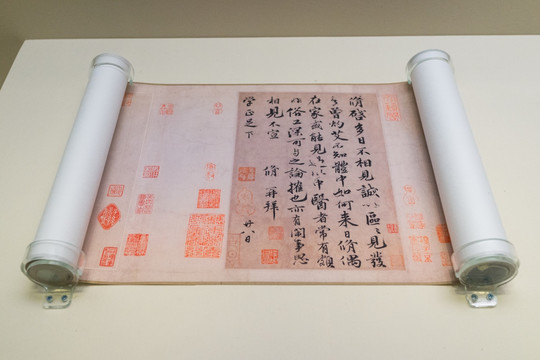 脩啓多日不相見誠以區〻見發
言曾灼艾不知體中如何來日脩偶
在家或能見過此中醫者常有頗
非俗工深可與之論權也亦有閑事思
相見不宣 脩再拜
學正足下 廿八日